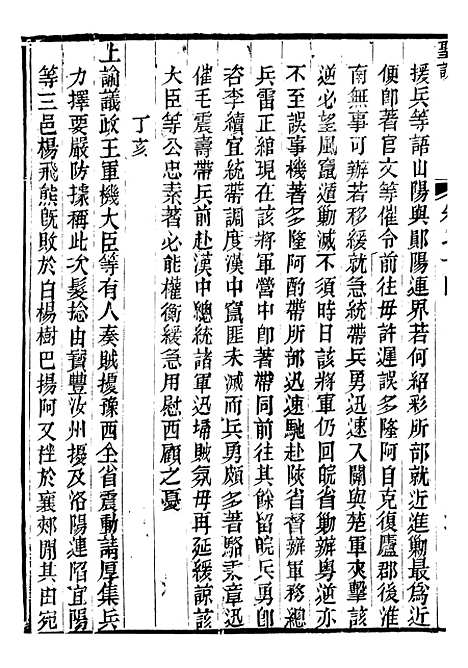 聖訓
援兵等語山陽與鄖陽連界若何紹彩所部就近進勦最爲近
便卽著官文等催令前往毋許遲誤多隆阿自克復廬郡後淮
南無事可辦若移緩就急統帶兵勇迅速入關與楚軍夾擊該
逆必望風竄遁勦滅不須時日該將軍仍回皖省勦辦粵逆亦
不至誤事機著多隆阿酌帶所部迅速馳赴陝省督辦軍務總
兵雷正綰現在該將軍營中卽著帶同前往其餘留皖兵勇卽
咨李續宜統帶調度漢中竄匪未滅而兵勇頗多著駱秉章迅
催毛震壽帶兵前赴漢中總統諸軍迅埽賊氛毋再延緩諒該
大臣等公忠素著必能權衡緩急用慰西顧之憂
丁亥
上諭議政王軍機大臣等有人奏賊擾豫西全省震動請厚集兵
力擇要嚴防據稱此次髮捻由寶豐汝州擾及洛陽連陷宜陽
等三邑楊飛熊旣敗於白楊樹巴揚阿又挫於襄郟閒其由宛